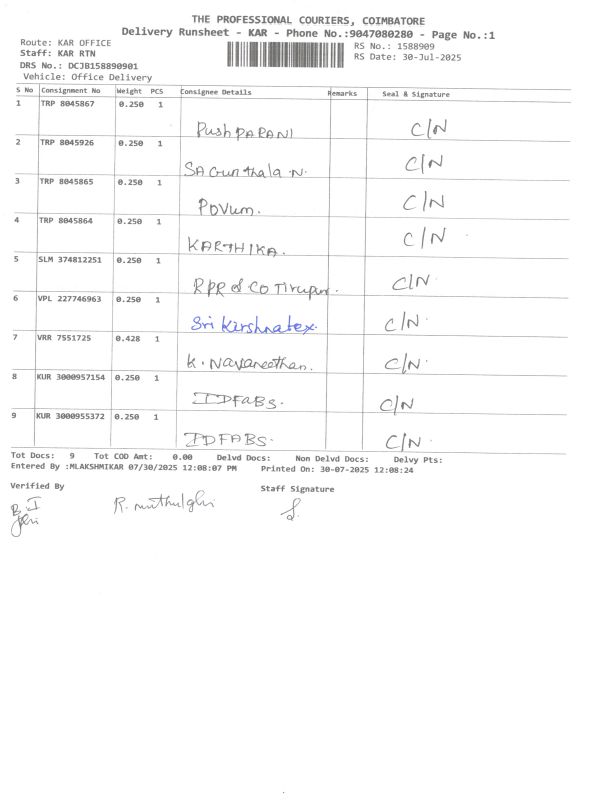 THE PROFESSIONAL COURIERS, COIMBATORE
Delivery Runsheet - KAR - Phone No.:9047080280 - Page No.:1
Route: KAR OFFICE
Staff: KAR RTN
DRS No.: DCJB158890901
Vehicle: Office Delivery
RS No.: 1588909
RS Date: 30-Jul-2025
S No Consignment No Weight PCS Consignee Details Remarks Seal & Signature
1 TRP 8045867 0.250 1
PushPARANI C/N
2 TRP 8045926 0.250 1
SAGunthala N. C/N
3 TRP 8045865 0.250 1
POVum. C/N
4 TRP 8045864 0.250 1
KARTHIKA. C/N
5 SLM 374812251 0.250 1
RPR & CO Tirupur. C/N
6 VPL 227746963 0.250 1
Sri Kirshnatex. C/N
7 VRR 7551725 0.428 1
K. Navaneethan. C/N
8 KUR 3000957154 0.250 1
IDFABS. C/N
9 KUR 3000955372 0.250 1
IDFABS. C/N
Tot Docs: 9 Tot COD Amt: 0.00 Delvd Docs: Non Delvd Docs: Delvy Pts:
Entered By :MLAKSHMIKAR 07/30/2025 12:08:07 PM Printed On: 30-07-2025 12:08:24
Verified By Staff Signature